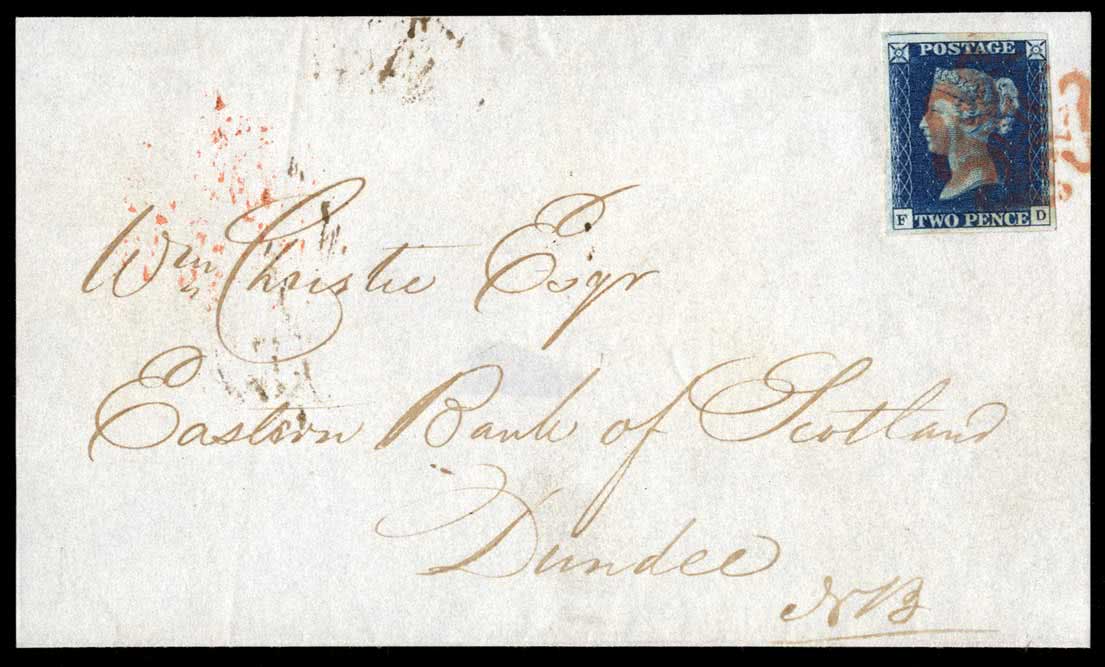 POSTAGE
F TWO PENCE D
Wm Christie Esqr
Eastern Bank of Scotland
Dundee
NB